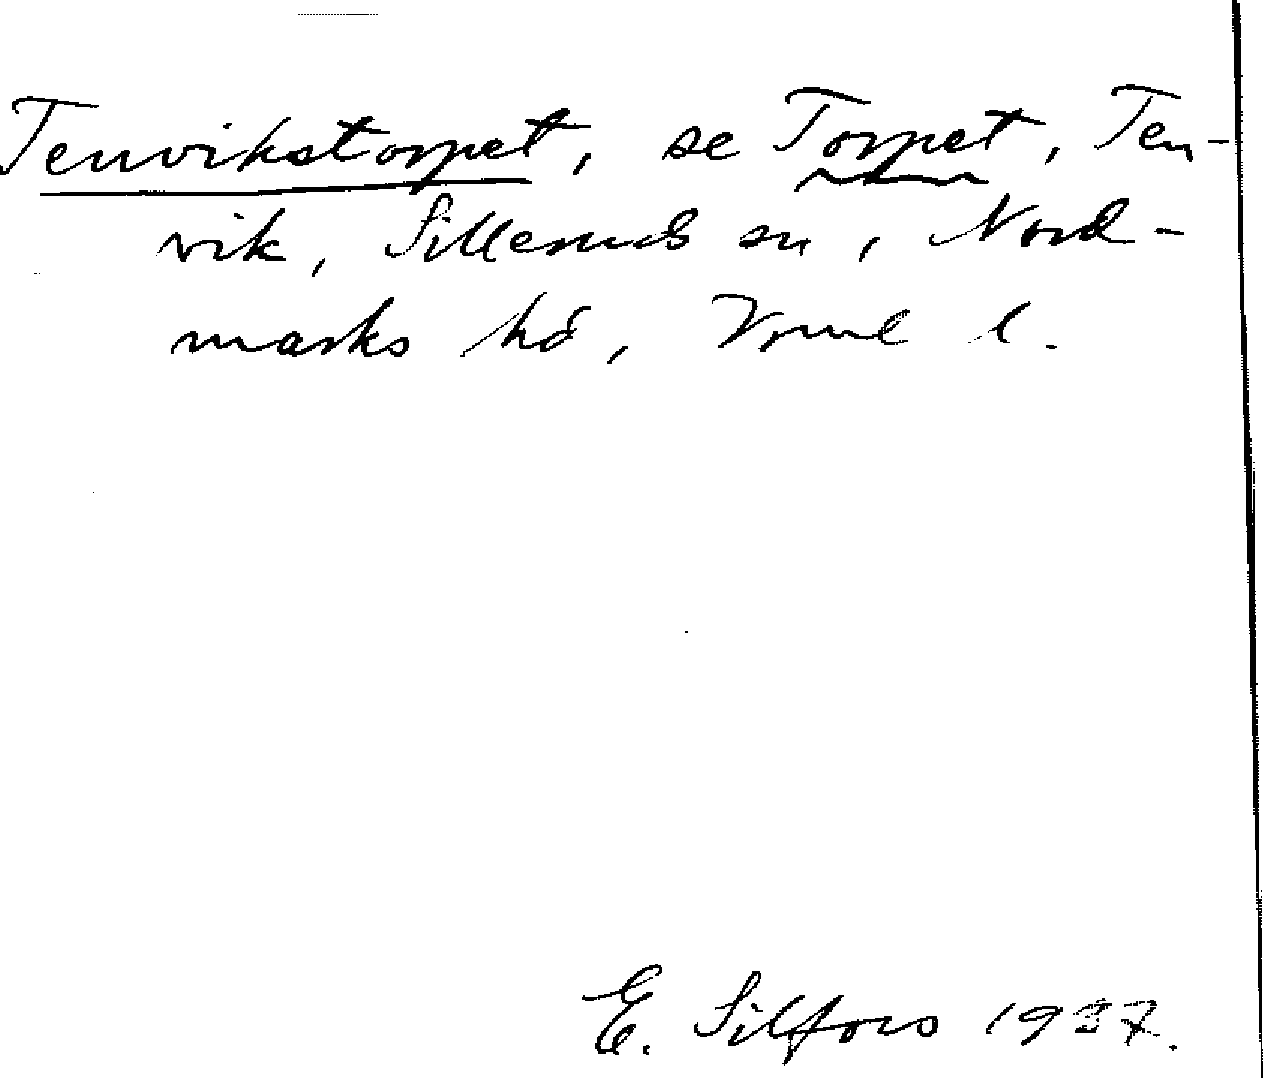 Tenvikstorpet, se Torpet, Ten-
vik, Silleruds sn, Nord-
marks hd, Vrml l.
E. Silfors 1937.